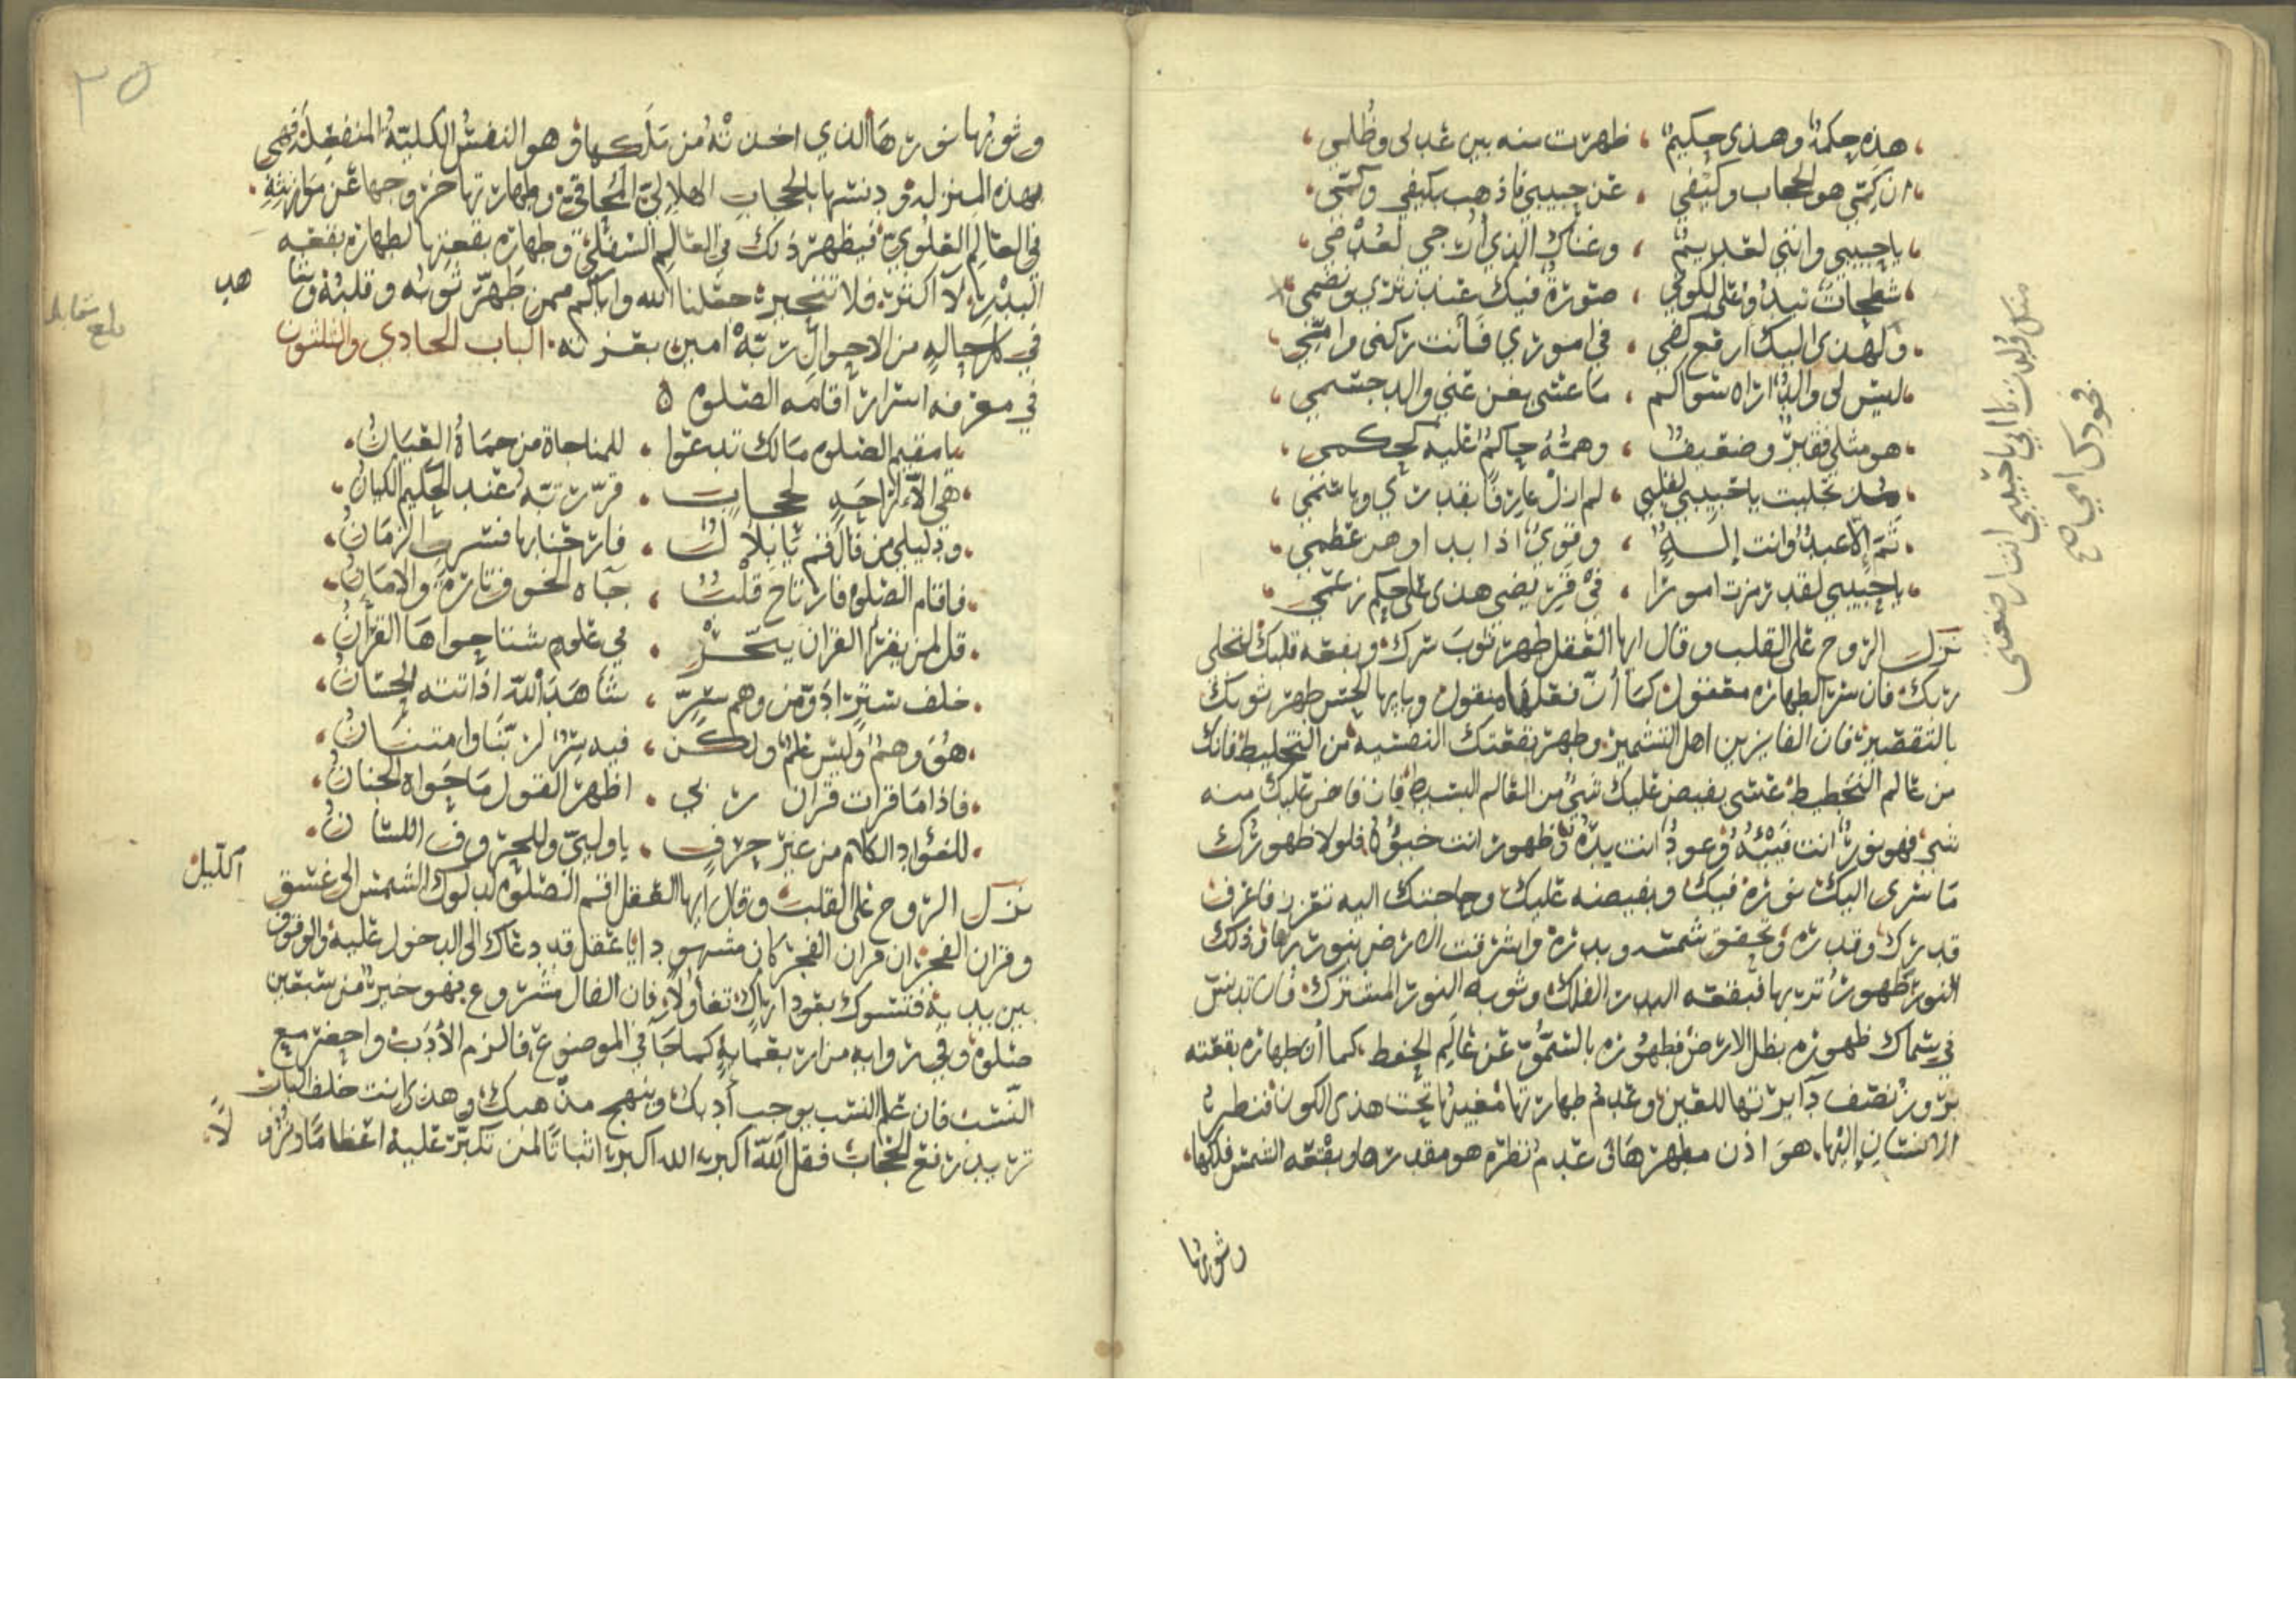 هذه حكمة وهذى حكيم ، ظهرت منه بين عدلى وظلمي
ان كمّي هو الحجاب وكيفي ، عن حبيبي فاذهب بكيفي وكمّي
يا حبيبي وانني لعديم ، وغناك الذي ارجي لعدمي
شطحات تبدو على الكون ، صورة فيك عند نثري ونظمي
ولهذى اليك ارفع كفي ، في اموري فانت ركنى وامّي
ليس لى والد اراه سواكم ، ما عسى يغن عني والد جسمي
هو مثلي فقير وضعيف ، وهمه حاكم عليه كحكمى
مذ تجليت يا حبيبي لقلبي ، لم ازل عارفا بقدري وباسمي
ثم الا عبد وانت إله ، وقوي اذا بدا وهن عظمي
يا حبيبي لقد رمزت امورا ، في قريضي هذى على حكم زعمي
نزل الروح على القلب وقال ايها العقل طهر ثوب سرك وبقعه قلبك لتجلى
ربك فان سر الطهارة معقول كما أن نقلها منقول ويا ايها الحس طهر ثوبك
بالتقصير فان الفايزين اهل التشمير وطهر بقعتك النصبية من التخليط فانك
من عالم التخطيط عسى يفيض عليك شيء من العالم البسيط فان فاض عليك منه
شيء فهو نور انت فيئه وعود انت بدؤه وظهور انت خبؤه فلولا ظهورك
ما سرى اليك نوره فيك وبفيضه عليك وحاجتك اليه تعزز فاعرف
قدرك وقدره وتحقق شمسه وبدره واشرقت الارض بنور ربها وذلك
النور ظهور تربها فبقعه البدر الفلك وثوبه النور المشترك فان تدنس
في سماك ظهوره بظل الارض فطهوره بالسمو عن عالم الخفض كما أن طهارة بقعته
بروز نصف دايرتها للعين وعدم طهارتها مغيبها تحت هذى الكون فنظر
الانسان إليها هو اذن مطهرها فى عدم نظره هو مقدرها وبقعه الشمس فلكها
وثوبها
وثوبها نورها الذي اخذته من ملكها وهو النفس الكلية المنفعلة فهى
بهذه المنزله ودنسها بالحجاب الهلالي المحاقي وطهارتها خروجها عن موازنته
في العالم العلوي فيظهر ذلك في العالم السفلي وطهاره بقعتها لطهاره بقعه
البدر لا اكثر فلا تتحير جعلنا الله واياكم ممن طهر ثوبه وقلبه وثبا
هب
في كل حاله من الاحوال ربه امين بعزته الباب الحادي والثلثون
في معرفه اسرار أقامه الصلوه
يا مقيم الصلوه مالك تدعوا ، للمناجاة من حماة العيان
هي الا لراحه لحجاب ، قررته عند الحكيم الكيان
ودليلي من قال قم يا بلال ، فارحنا بها فسرّ الزمان
فاقام الصلوة فارتاح قلب ، جاه الخوف تارة والامان
قل لمن يقرا القران يتحر ، في علوم سنا حواها القرآن
خلف ستر ادقّ من وهم سرّ ، شاهد الله اذ اتته الحسان
هو وهم وليس علم ولكن ، فيه سر لربنا وامتنان
فاذا ما قرات قران ربي ، اظهر القول ما حواه الجنان
للفؤاد الكلام من غير حرف ، يا وليي وللحروف اللسان
نزل الروح على القلب وقال ايها العقل اقم الصلوه لدلوك الشمس الى غسق
الليل
وقران الفجر ان قران الفجر كان مشهودا يا عقل قد دعاك الى الدخول عليه والوقوف
بين يديه فتسوك بعود اراك تفاولا فان الفال مشروع فهو خير من سبعين
صلوة وفي روايه من اربعمايه كما جآ في الموضوع فالزم الأدب واحضر مع
النسب فان علم النسب يوجب أدبك وينهج مذهبك وهذى انت خلف الباب
تريد رفع الحجاب فقل الله اكبر الله اكبر اثباتا لمن تكبر عليه اعظاما
لا